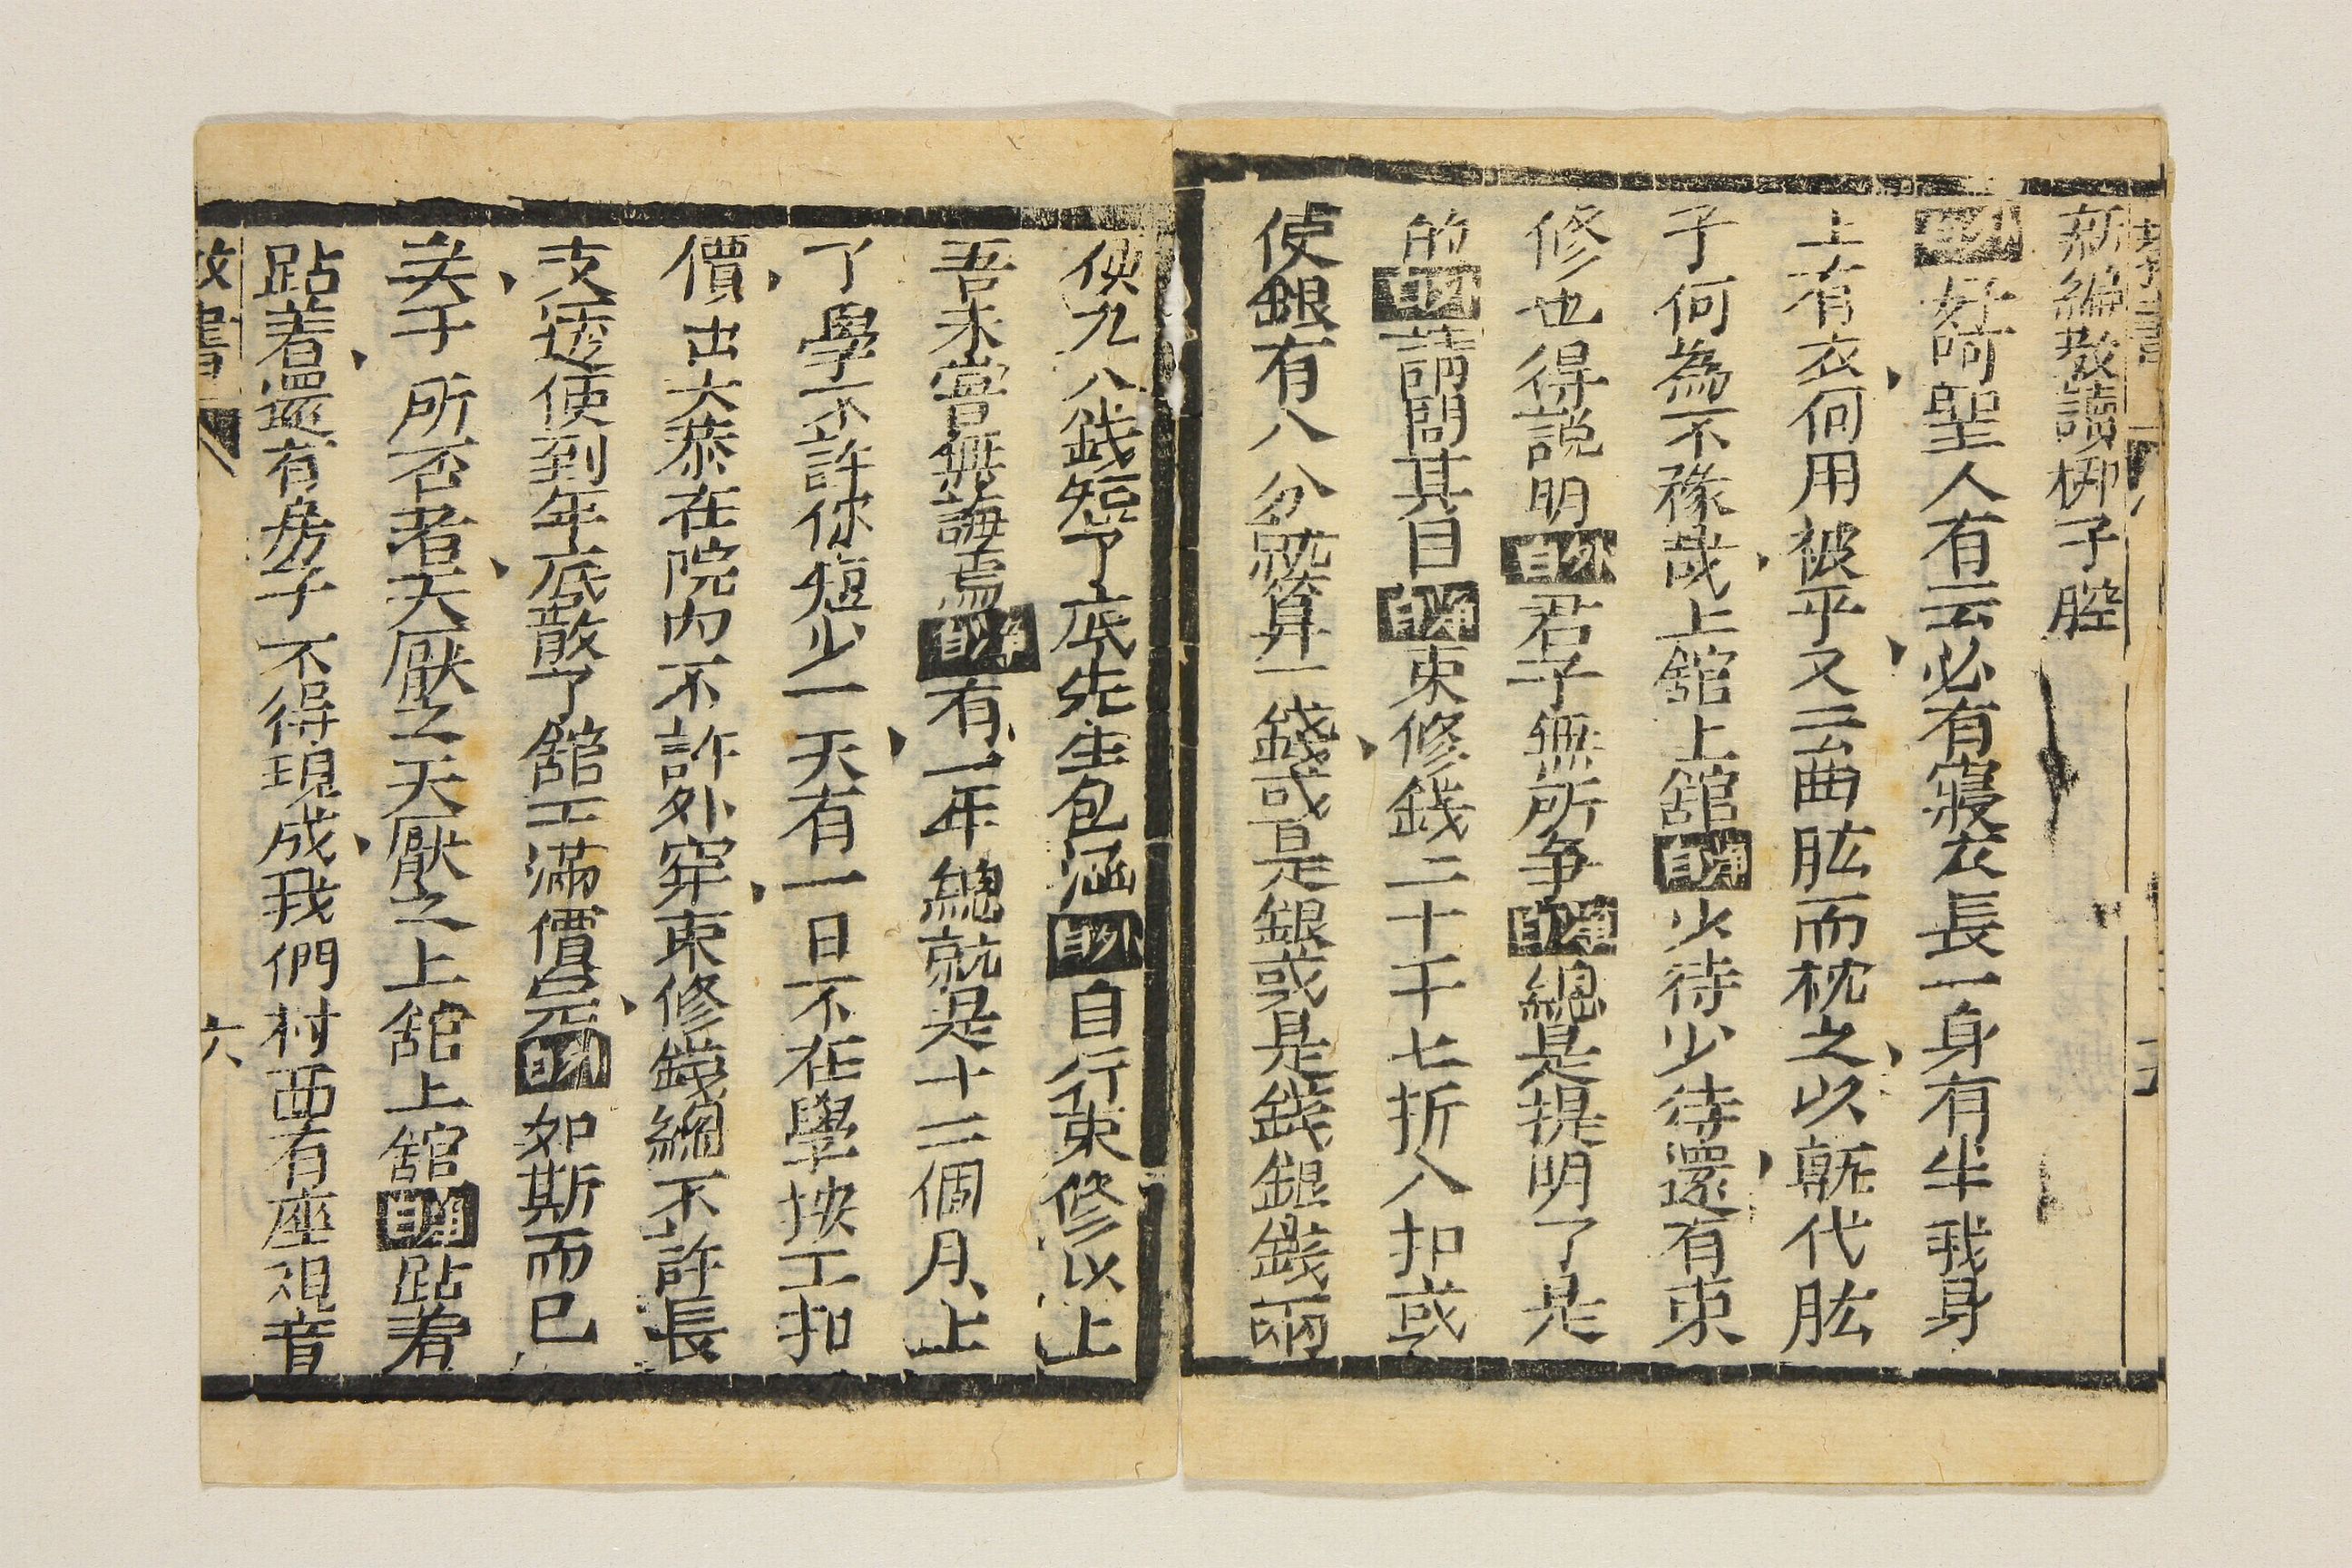 新編教讀梆子腔
外白好呵聖人有云必有寢衣長一身有半我身
上有衣何用被乎又云曲肱而枕之以靴代肱
子何為不豫哉上舘上舘淨白少待少待還有束
修也得說明外白君子無所争淨白總是提明了是
的外白請問其目淨白束修錢二十千七折八扣或
使銀有八分就算一錢或是銀或是錢銀錢兩
使九八錢短了底先生包涵外白自行束修以上
吾未嘗無誨焉淨白有一年總就是十二個月上
了學不許你短少一天有一日不在學按工扣
價出大恭在院內不許外穿束修錢縂不許長
支透使到年底散了舘工滿價完外白如斯而已
矣予所否者天厭之天厭之上舘上舘淨白跕着
跕着還有房子不得現成我們村西有座观音
教書
六